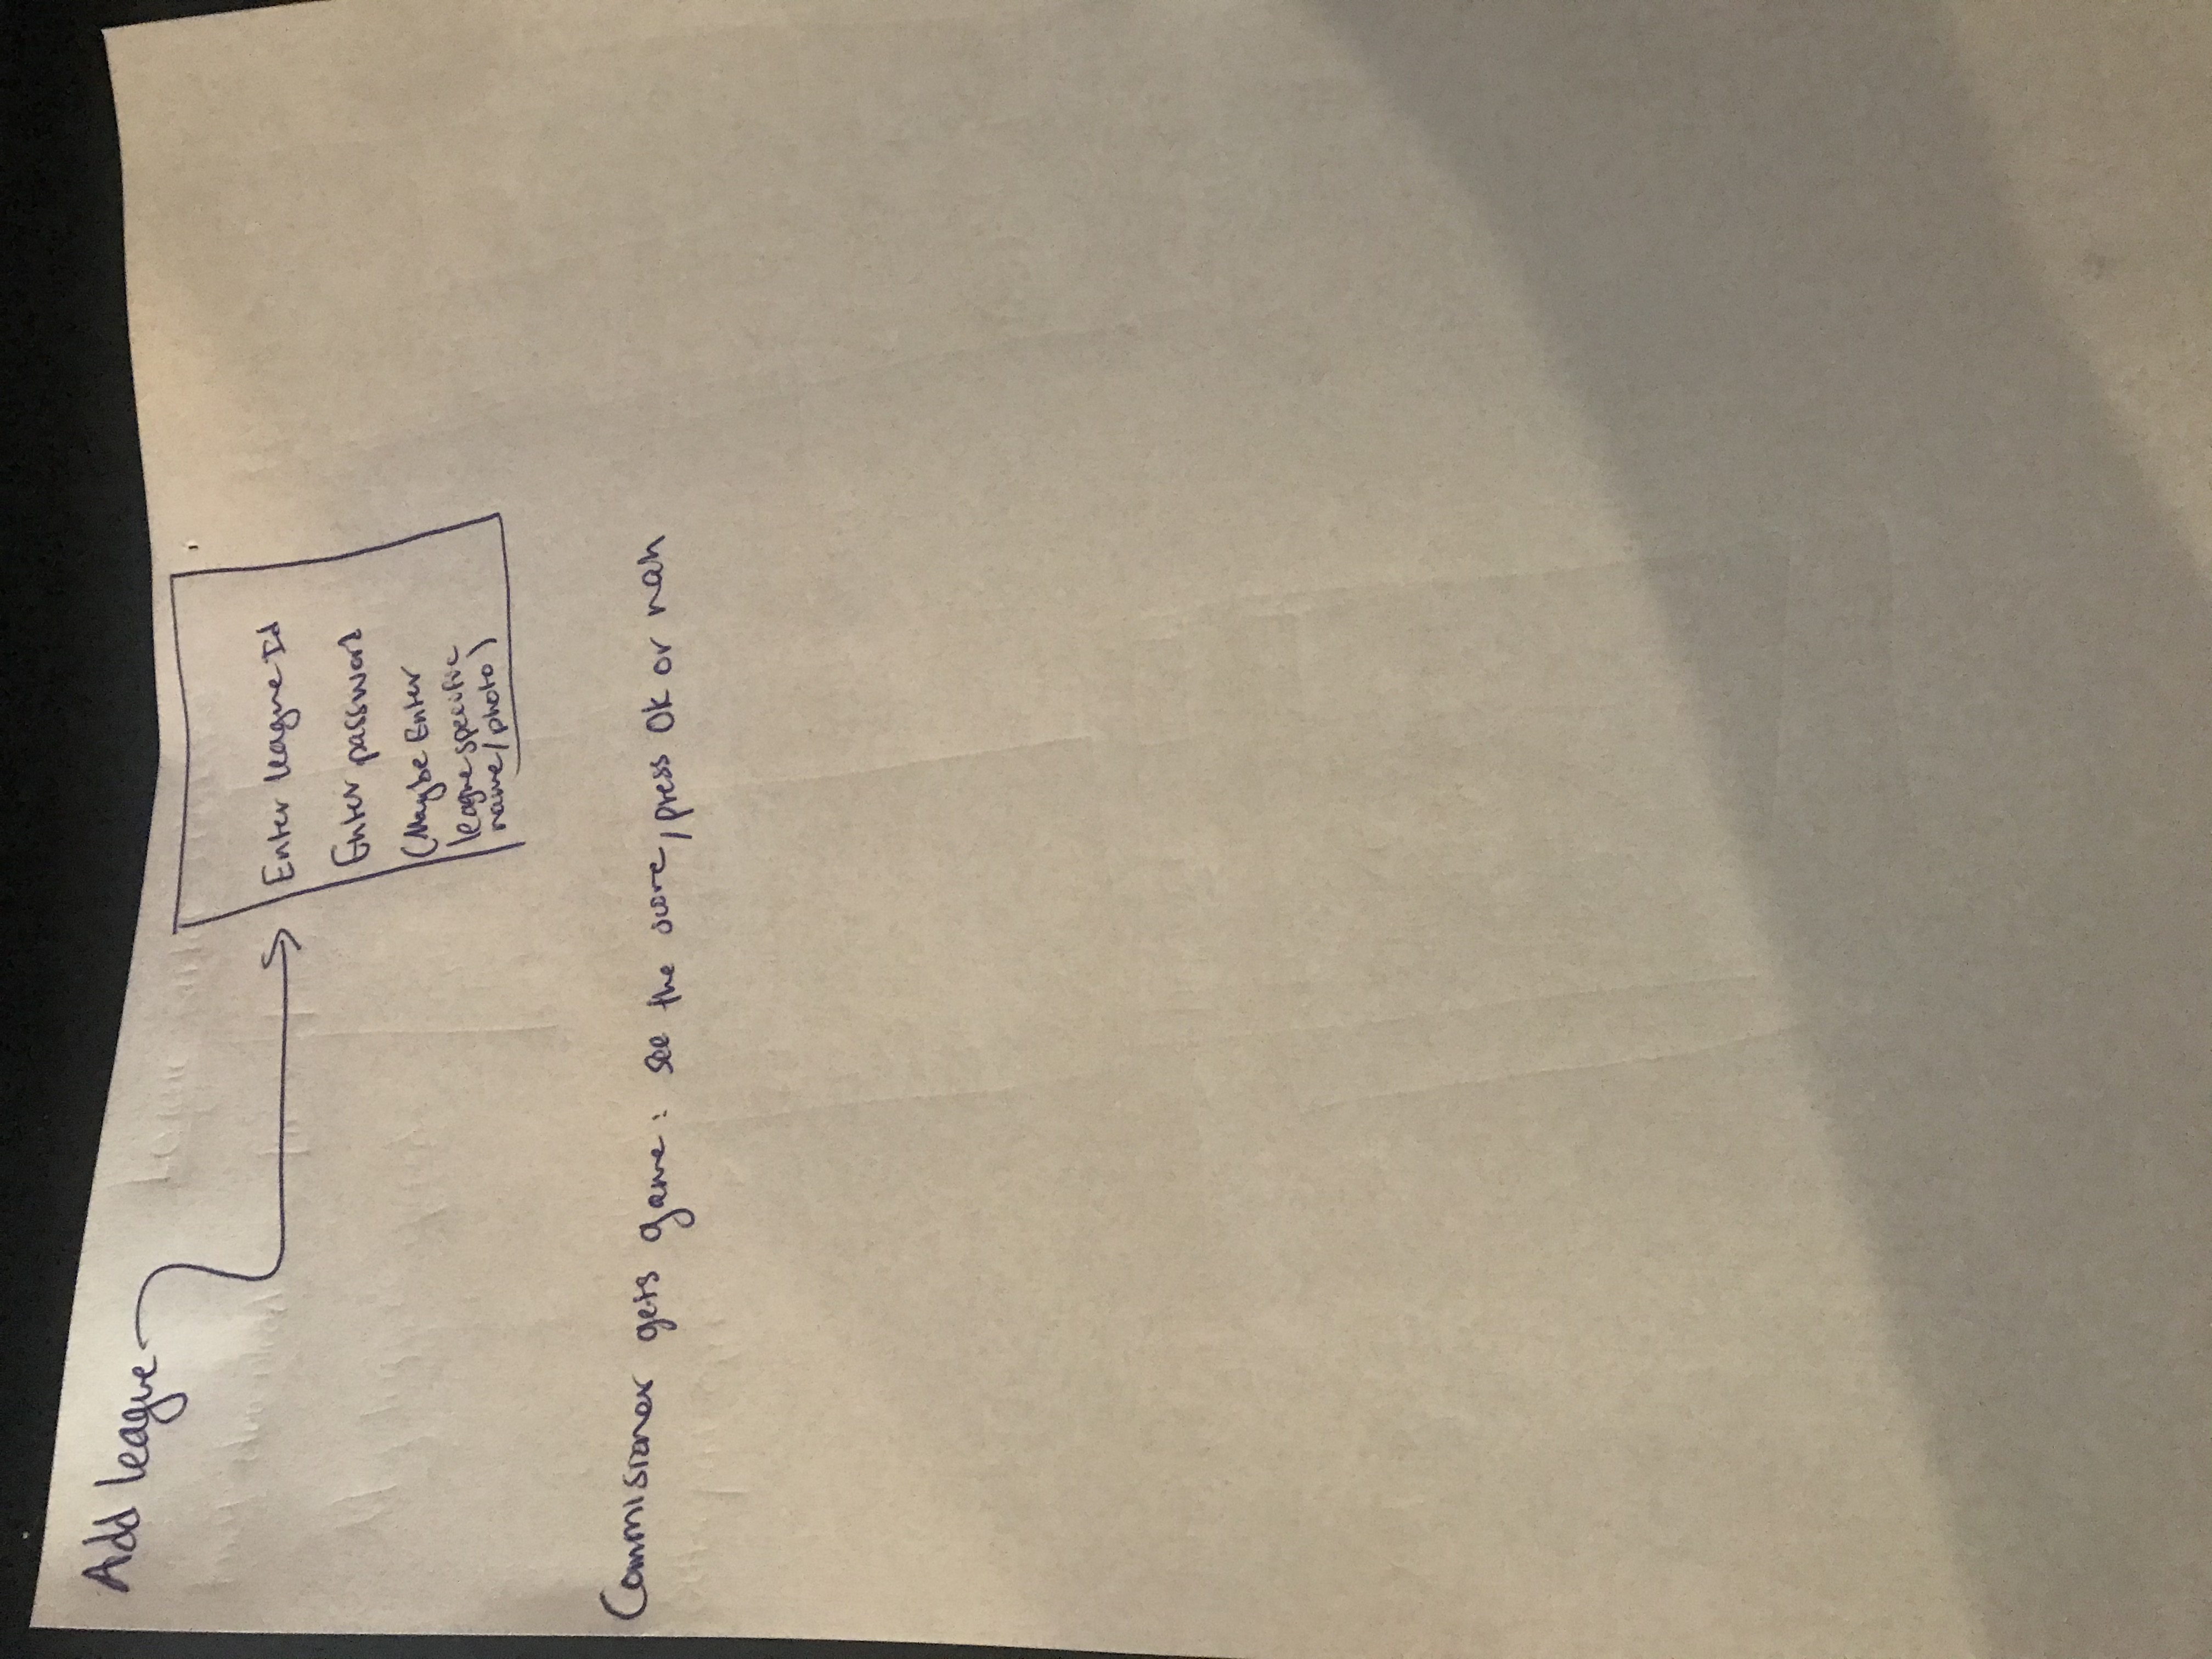 Add league
Enter league Id
Enter password
(Maybe Enter
league specific
name/photo)
Commisioner gets game: see the score, press OK or nah